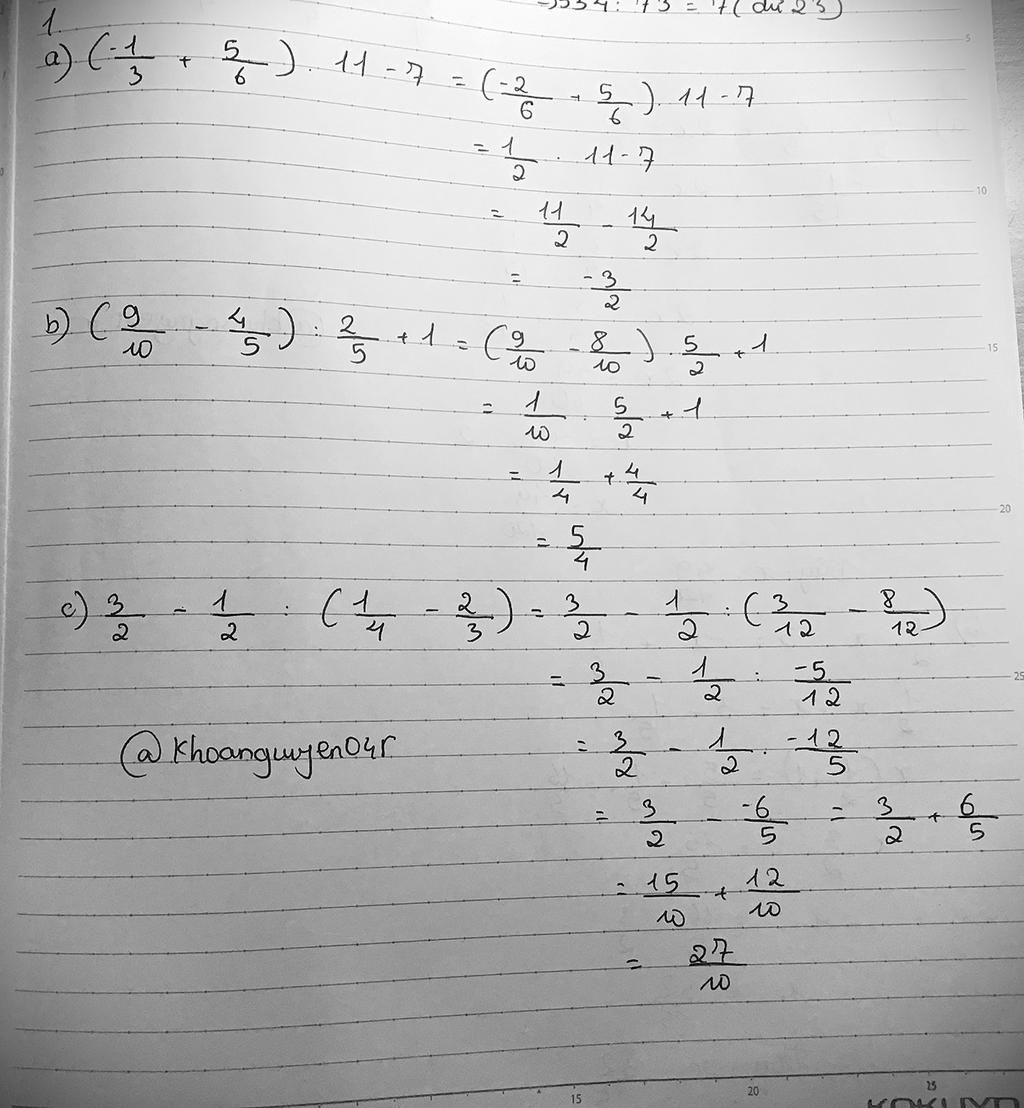 → 534 : 73 = 7 (dư 23)
1.
a) (-1/3 + 5/6) . 11 - 7 = (-2/6 + 5/6) . 11 - 7
= 1/2 . 11 - 7
= 11/2 - 14/2
= -3/2
b) (9/10 - 4/5) : 2/5 + 1 = (9/10 - 8/10) . 5/2 + 1
= 1/10 . 5/2 + 1
= 1/4 + 4/4
= 5/4
c) 3/2 - 1/2 : (1/4 - 2/3) = 3/2 - 1/2 : (3/12 - 8/12)
= 3/2 - 1/2 : -5/12
@khoanguyen04r = 3/2 - 1/2 . -12/5
= 3/2 - -6/5 = 3/2 + 6/5
= 15/10 + 12/10
= 27/10
5
10
15
20
25
15
20
25
KOKUYO